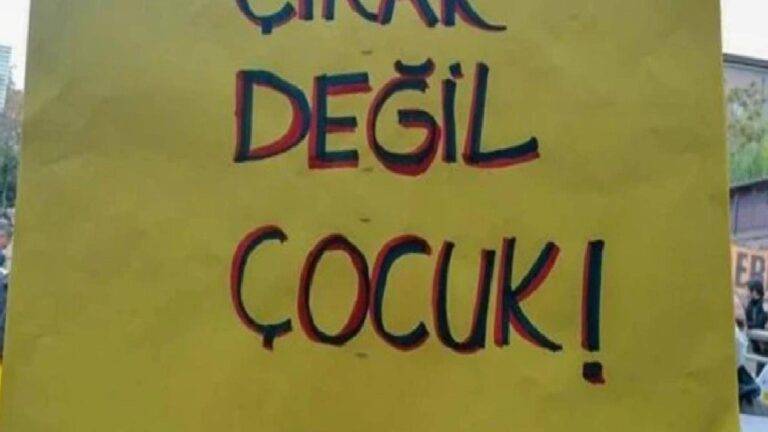 ÇIRAK
DEĞİL
ÇOCUK!
ER